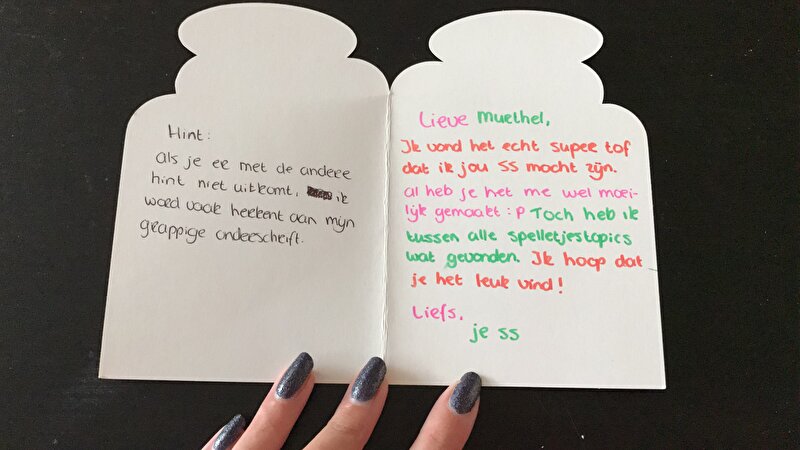 Hint:
Als je er met de andere
hint niet uitkomt, ik
word vaak herkent aan mijn
grappige onderschrift.
Lieve Muethel,
Ik vond het echt super tof
dat ik jou SS mocht zijn.
Al heb je het me wel moei-
lijk gemaakt :P Toch heb ik
tussen alle spelletjestopics
wat gevonden. Ik hoop dat
je het leuk vind!
Liefs,
je SS